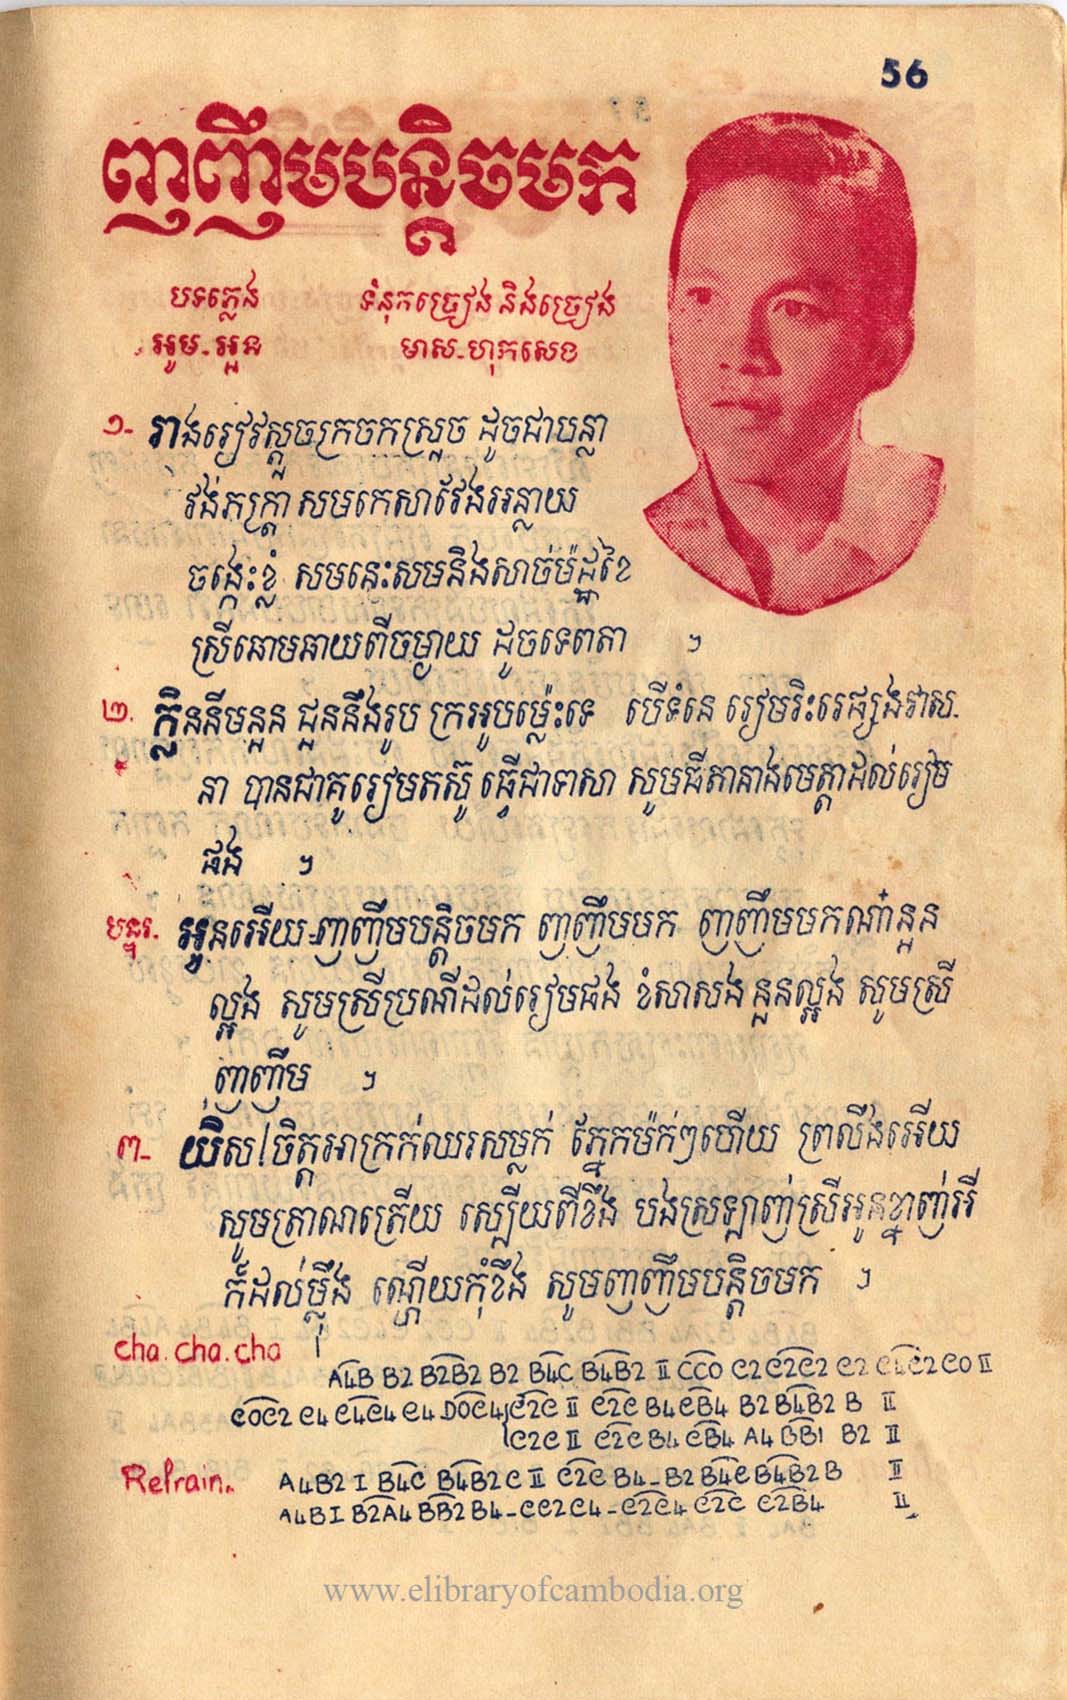 56
ញញឹមបន្តិចមក
បទភ្លេង ទំនុកច្រៀង និងច្រៀង
អូម-អួន មាស-ហុកសេង
១- រាងរៀវស្តួចក្រចកស្រួច ដូចជាបន្លា
វង់ភក្ត្រា សមកេសាវែងអន្លាយ
ចង្កេះខ្លំ សមនេះសមនិងសាច់ម៉ដ្ឋខៃ
ស្រីឆោមឆាយពីចម្ងាយ ដូចទេពតា ។
២. ក្លិននីមនួន ជួននឹងរូប ក្រអូបម្ល៉េះទេ បើទំនេ រៀមរិះរេផ្សងវាស-
នា បានជាគូរៀមតស៊ូ ធ្វើជាទាសា សូមធីតានាងមេត្តាដល់រៀម
ផង ។
បន្ទរ. អូនអើយ-ញញឹមបន្តិចមក ញញឹមមក ញញឹមមកណ៎ានួន
ល្អង សូមស្រីប្រណីដល់រៀមផង ខំសាសង នួនល្អង សូមស្រី
ញញឹម ។
៣- យ៉ិស!ចិត្តអាក្រក់ឈរសម្លក់ ភ្នែកម៉ក់ៗហើយ ព្រលឹងអើយ
សូមត្រាណត្រើយ ស្បើយពីខឹង បងស្រឡាញ់ស្រីអូនខ្នាញ់អី
ក៏ដល់ម្ល៉ឹង ណ្ហើយកុំខឹង សូមញញឹមបន្តិចមក ។
cha.cha.cha
A4B B2 B2B2 B2 B4C B4B2 II CCO C2C2C2 C2 C4C2CO II
COC2 C4 C4C4 C4 DOC4 C2C II C2C B4CB4 B2 B4B2 B II
C2C II C2C B4 CB4 A4 BB1 B2 II
Refrain. A4B2 I B4C B4B2C II C2C B4-B2 B4C B4B2 B II
A4BI B2A4 BB2 B4-CC2C4-C2C4 C2C C2B4 II
www.elibraryofcambodia.org